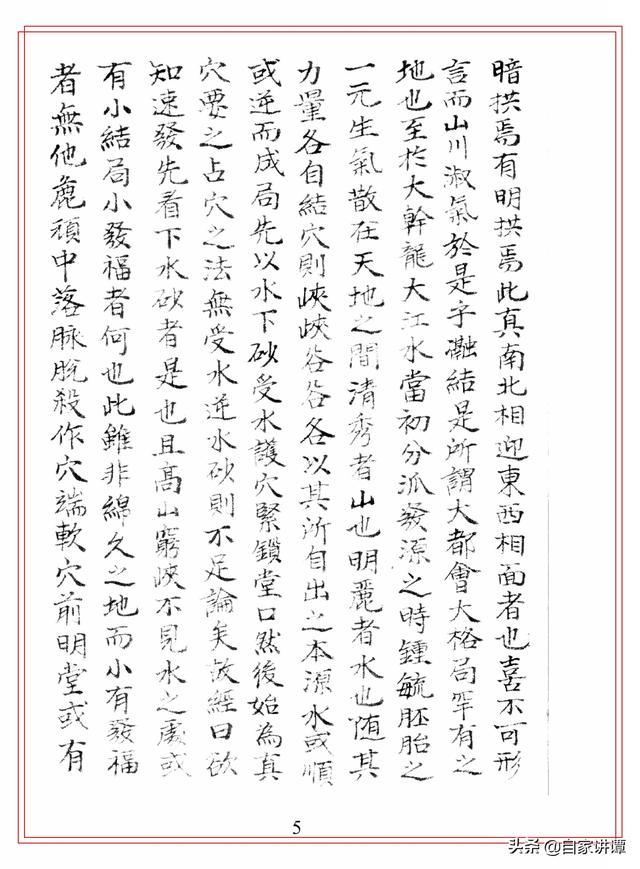 暗拱焉有明拱焉此真南北相迎東西相面者也喜不可形
言而山川淑氣於是乎凝結是所謂大都會大格局罕有之
地也至於大幹龍大江水當初分派發源之時鍾毓胚胎之
一元生氣散在天地之間清秀者山也明麗者水也随其
力量各自結穴則峽峽谷谷各以其所自出之本源水或順
或逆而成局先以水下砂受水護穴緊鎖堂口然後始為真
穴要之占穴之法無受水逆水砂則不足論矣故經曰欲
知速發先看下水砂者是也且高山窮峽不見水之處或
有小結局小發福者何也此雖非綿久之地而小有發福
者無他麁頑中落脉脫殺作穴端軟穴前明堂或有
5
头条 @自家讲谭